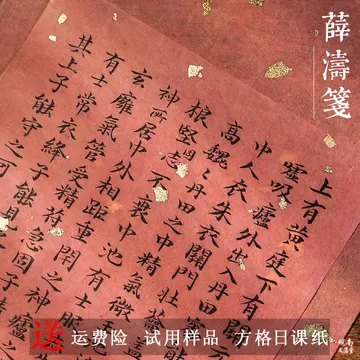 薛濤箋
上有黃庭下有
噓吸廬外出入丹田
中人衣朱衣關門壯
高巍巍丹田之中精氣微
根堅固志不衰中池有士服
神所居中外相距重閉之神廬之
玄膺氣管受精符急固子
有士常衣絳子能見
其上子能守之可
送 运费险 试用样品 方格日课纸